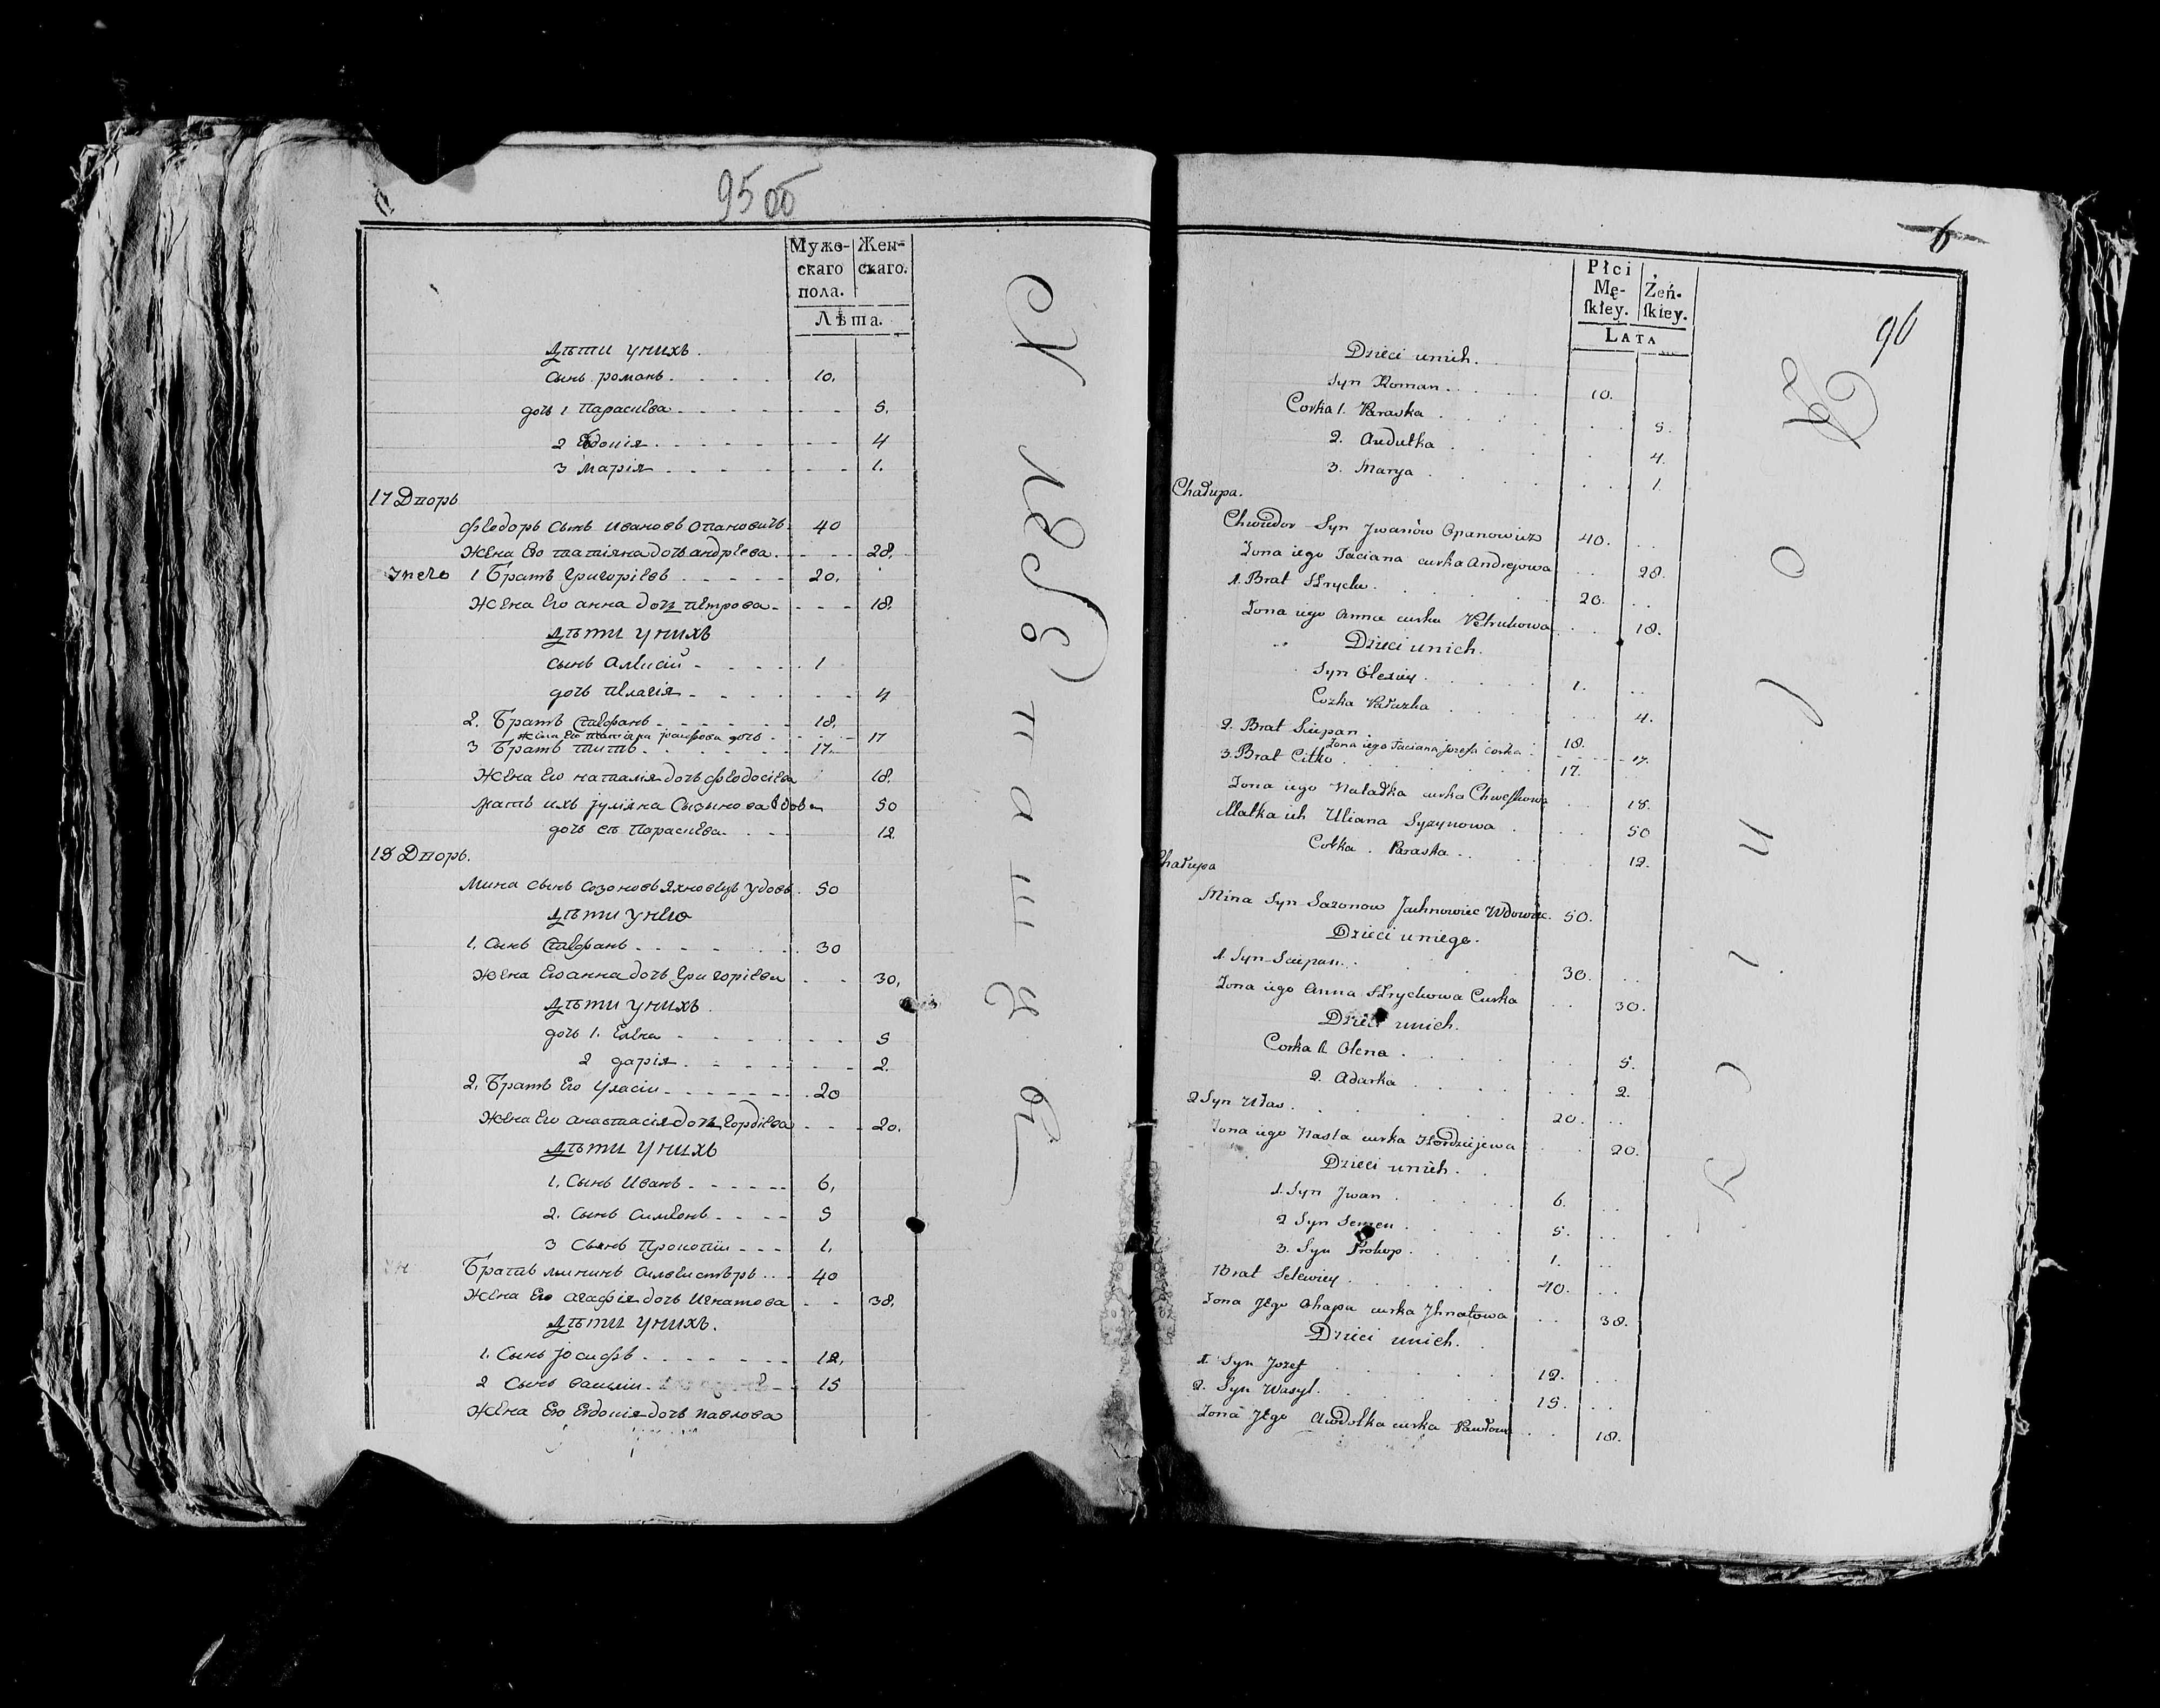 95 об
Мужескаго пола.
Женскаго.
Лѣта.
Дѣти унихъ.
Сынъ романъ. 10.
дочь 1 Параскева 5.
2 Евдокія 4
3 Марія 1.
17 Дворъ
Феодоръ Сынъ Ивановъ Опановичъ 40
Жена Его татіяна дочь андрѣева 28.
Унего 1 Братъ Григорїевъ 20.
Жена Его анна дочь петрова 18.
Дѣти унихъ
Сынъ Алексій 1
дочь пелагія 4
2. Братъ Стефанъ 18.
Жена Его татіяна дочь 17
3 Братъ титъ 17.
Жена Его наталія дочь феодосіева 18.
Мать ихъ Іуліяна Сызынова вдова 50
дочь ея Параскева 12
18 Дворъ.
Мина Сынъ Созоновъ Яхновецъ удовъ. 50
Дѣти унего
1. Сынъ Стефанъ 30
Жена Его анна дочь Григорїева 30.
Дѣти унихъ.
дочь 1. Елена 5
2 дарія 2.
2. Братъ Его Уласіи 20
Жена Его анастасія дочь Гордіева 20.
Дѣти унихъ
1. Сынъ Иванъ 6.
2. Сынъ Симеонъ 5
3 Сынъ Прокопіи 1.
Братъ мининъ Силвистеръ 40
Жена Его агафія дочь Игнатова 38.
Дѣти унихъ.
1. Сынъ Іосифъ 12.
2 Сынъ василіи 15
Жена Его Евдокія дочь павлова
6
96
Płci Męſkiey.
Żeńſkiey.
LATA
Dzieci unich.
Syn Roman 10.
Corka 1. Paraska 5.
2. Audułka 4.
3. Marya 1.
Chałupa.
Chwedor Syn Jwanów Opanowicz 40.
Zona iego Taciana curka Andrejowa 28.
1. Brat Hrycko 20.
Zona iego Anna curka Petrukowa 18.
Dzieci unich.
Syn Olexiey 1.
Corka Pałazka 4.
2. Brat Sciepan 18.
Zona iego Taciana Jozefa corka 17.
3. Brat Citko 17.
Zona iego Natałka curka Chweſkowa 18.
Matka ich Uliana Syzynowa 50
Corka Paraska 12.
Chałupa
Mina Syn Sazonow Jachnowiec Wdowiec 50.
Dzieci uniego.
1. Syn Sciepan 30.
Zona iego Anna Hrychowa Curka 30.
Dzieci unich.
Corka 1. Olena 5.
2. Adarka 2.
2 Syn Ułas 20.
Zona iego Nasta curka Hordziejewa 20.
Dzieci unich.
1. Syn Jwan 6.
2 Syn Semen 5.
3. Syn Prokop 1.
Brat Selewiey 40.
Zona Jego Ahapa curka Jhnatowa 38.
Dzieci unich.
1. Syn Jozef 12.
2. Syn Wasyl 15.
Zona Jego Awdołka curka Pawłowa 18.